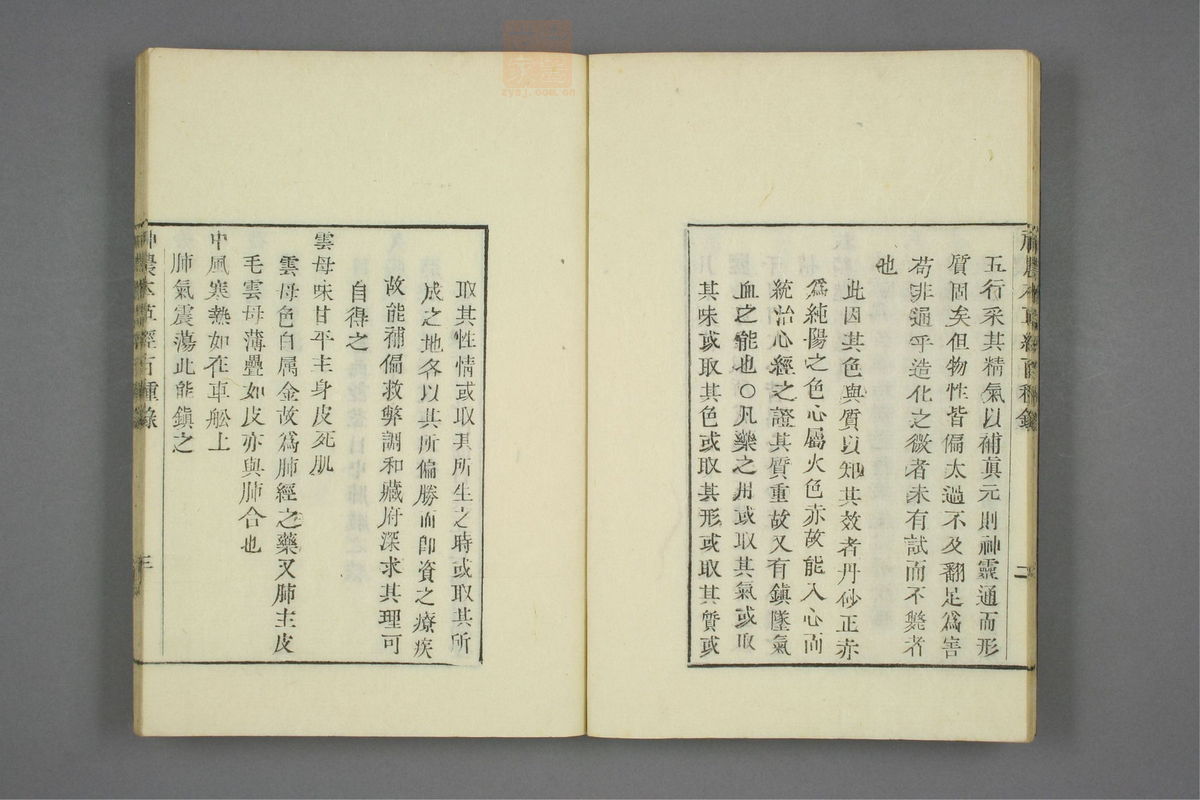 神農本草經百種錄
二
五行采其精氣以補眞元則神靈通而形
質固矣但物性皆偏太過不及翻足爲害
苟非通乎造化之微者未有試而不斃者
也
此因其色與質以知其效者丹砂正赤
爲純陽之色心屬火色赤故能入心而
統治心經之證其質重故又有鎮墜氣
血之能也〇凡藥之用或取其氣或取
其味或取其色或取其形或取其質或
取其性情或取其所生之時或取其所
成之地各以其所偏勝而卽資之療疾
故能補偏救弊調和藏府深求其理可
自得之
雲母味甘平主身皮死肌
雲母色白属金故爲肺經之藥又肺主皮
毛雲母薄疊如皮亦與肺合也
中風寒熱如在車舩上
肺氣震蕩此能鎮之
神農本草經百種錄
三
zysj.com.cn